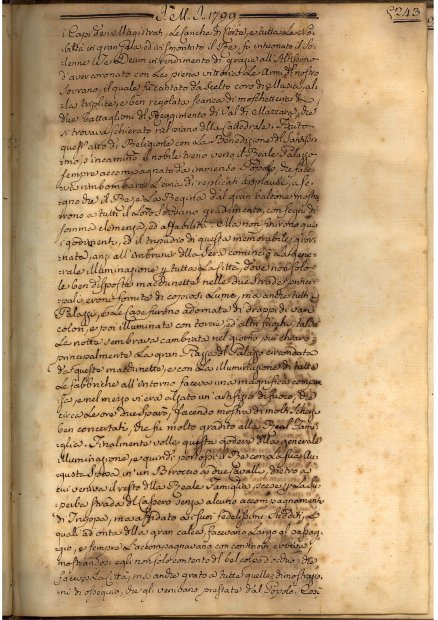 J. M. J. 1799
243
i Capi de i Magistrati, le Cariche di Corte, e tutta la No
biltà in gran Gala, ed ivi smontato il Rè, fù intuonato il So
lenne Te Deum in rendimento di grazie all'Altissimo
d'aver coronato con Les piena vittoria le Armi di nostro
Sovrano, il quale fù cantato da scelto coro di Musica, al
la triplice, e ben regolata scarica di moschetteria di
due Battaglioni del Reggimento di Val di Mazzara, che
si trovava schierato nel piano della Cattedrale. Finito
quest'atto di Religione con la Benedizione del Santissi
mo, s'incaminò il nobile treno verso il Reale Palazzo
sempre accompagnato da immenso Popolo, che face
va rimbombare l'aria di replicati applausi, a se
gno che il Rè, e la Regina dal gran balcone mostra
rono a tutti il Loro Sovrano gradimento, con segni di
somma clemenza, ed affabiltà. Ma non finirono qui
i godimenti, ed il tripudio di questa memorabile gior
nata, anzi all'imbrunir della Sera cominciò la gene
rale illuminazione di tutta la Città, dove non solo
le ben disposte macchinette nelle due Strade princi
pali erano fornite di copiosi Lumi, ma anche tutti i
Palazzi, e le Case furono adornate di drappi di va
colori, e poi illuminate con torcie, ed altri fuochi, talche
la notte sembrava cambiata nel giorno più chiaro,
principalmente la gran Piazza del Palazzo circondata
da queste macchinette, e con la illuminazione di tutte
le fabbriche all'intorno faceva una magnifica compar
sa, e nel mezzo vi era alzato un artifizio di fuoco, che
circa le ore due sparò, facendo mostra di molti scherzi
ben concertati, che fù molto gradito alla Real Fami
glia. Finalmente volle questa godere della generale
illuminazione, e quindi portossi il Rè con la sua Au
gusta Sposa in un Birroccio a due Cavalli, dietro a
cui veniva il resto della Reale Famiglia, per la su
perba strada del Cassero senza alcun accompagnamento
di Truppa, ma affidato a i suoi fedelissimi Sudditi, i
quali ad onta della gran calca, facevano largo al passag
gio, e sempre l'accompagnavano con continui evviva,
mostrandosi egli non solo contento del bel colpo d'occhio, che
faceva la Città, ma anche grato a tutte quelle dimostrazio
ni di ossequio, che gli venivano prestate dal Popolo. Così